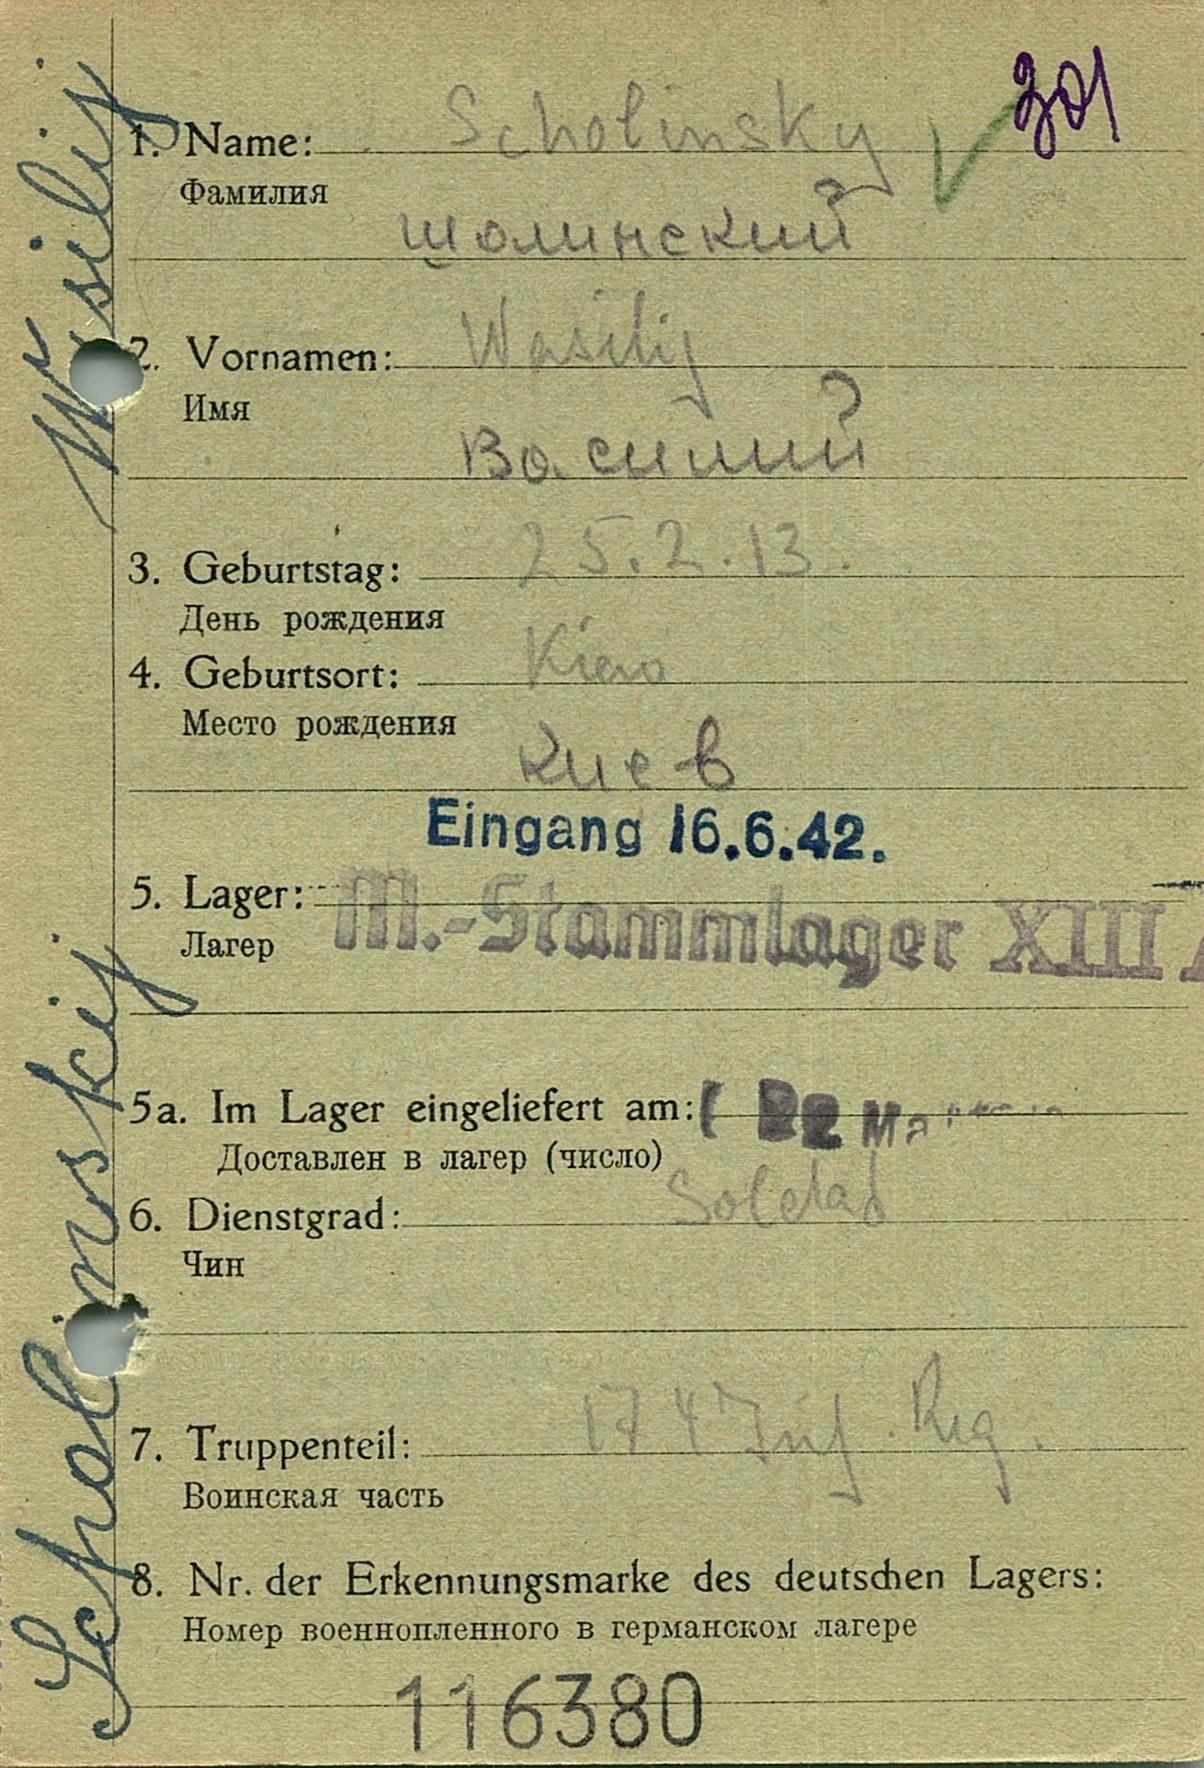 301
1. Name: Scholinsky
Фамилия
Шолинский
2. Vornamen: Wasilij
Имя
Василий
3. Geburtstag: 25.2.13.
День рождения
4. Geburtsort: Kiew
Место рождения
Киев
Eingang 16.6.42.
5. Lager: M.-Stammlager XIII A
Лагер
5a. Im Lager eingeliefert am:
Доставлен в лагер (число)
6. Dienstgrad: Soldat
Чин
7. Truppenteil: 174 Inf. Reg.
Воинская часть
8. Nr. der Erkennungsmarke des deutschen Lagers:
Номер военнопленного в германском лагере
116380
Scholinskij Wasilij